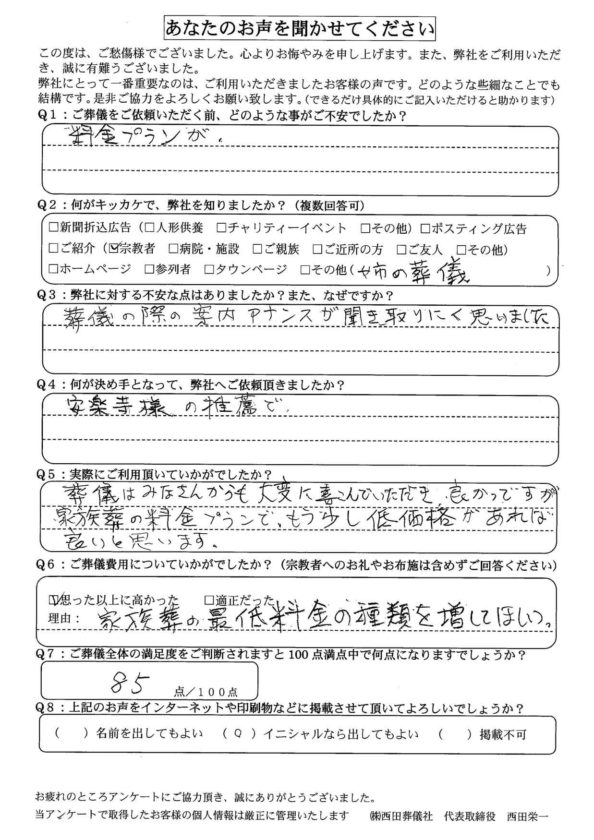 あなたのお声を聞かせてください
この度は、ご愁傷様でございました。心よりお悔やみを申し上げます。また、弊社をご利用いただ
き、誠に有難うございました。
弊社にとって一番重要なのは、ご利用いただきましたお客様の声です。どのような些細なことでも
結構です。是非ご協力をよろしくお願い致します。（できるだけ具体的にご記入いただけると助かります）
Q1：ご葬儀をご依頼いただく前、どのような事がご不安でしたか？
料金プランが、
Q2：何がキッカケで、弊社を知りましたか？（複数回答可）
□新聞折込広告（□人形供養　□チャリティーイベント　□その他）□ポスティング広告
□ご紹介（☑宗教者　□病院・施設　□ご親族　□ご近所の方　□ご友人　□その他）
□ホームページ　□参列者　□タウンページ　□その他（姉の葬儀　）
Q3：弊社に対する不安な点はありましたか？また、なぜですか？
葬儀の際の案内アナンスが聞き取りにく思いました
Q4：何が決め手となって、弊社へご依頼頂きましたか？
安楽寺様の推薦で、
Q5：実際にご利用頂いていかがでしたか？
葬儀はみなさんからも大変に喜んでいただき、良かっですが
家族葬の料金プランで、もう少し低価格があれば
良いと思います。
Q6：ご葬儀費用についていかがでしたか？（宗教者へのお礼やお布施は含めずご回答ください）
☑思った以上に高かった　□適正だった
理由：家族葬の最低料金の種類を増してほしい。
Q7：ご葬儀全体の満足度をご判断されますと100点満点中で何点になりますでしょうか？
85　点／100点
Q8：上記のお声をインターネットや印刷物などに掲載させて頂いてよろしいでしょうか？
（　）名前を出してもよい　（○）イニシャルなら出してもよい　（　）掲載不可
お疲れのところアンケートにご協力頂き、誠にありがとうございました。
当アンケートで取得したお客様の個人情報は厳正に管理いたします　㈱西田葬儀社　代表取締役　西田栄一